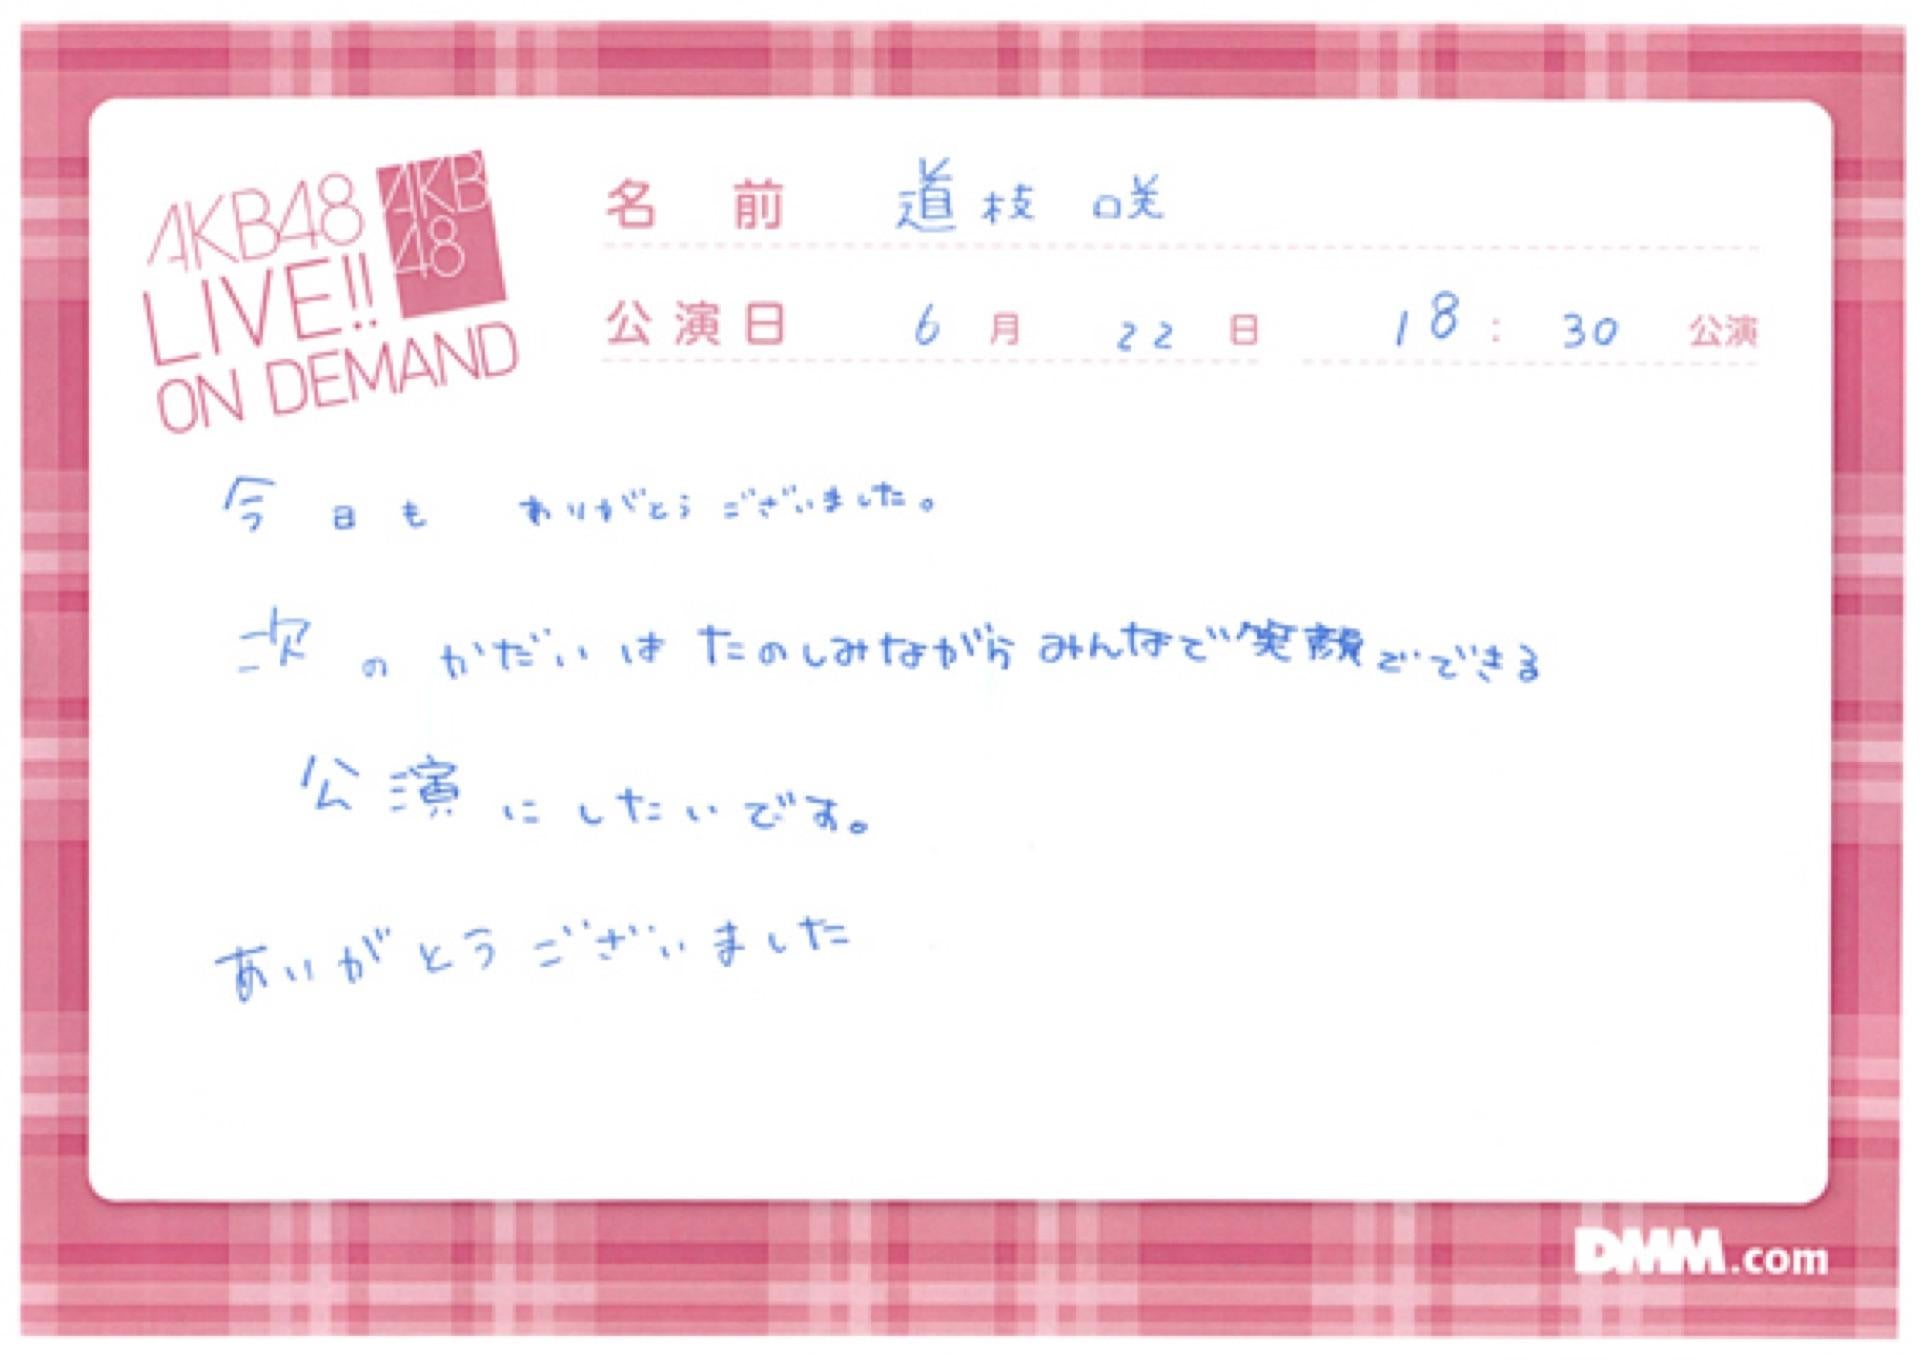 AKB48
LIVE!!
ON DEMAND
AKB
48
名前 道枝 咲
公演日 6月 22日 18:30 公演
今日も ありがとうございました。
次のかだいは たのしみながら みんなで笑顔でできる
公演にしたいです。
ありがとうございました
DMM.com